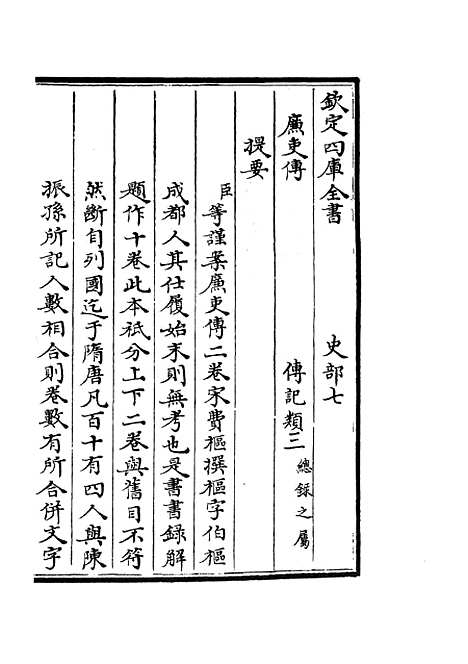 欽定四庫全書　史部七
廉吏傳　傳記類三總錄之屬
提要
臣等謹案廉吏傳二卷宋費樞撰樞字伯樞
成都人其仕履始末則無考也是書書錄解
題作十卷此本祇分上下二卷與舊目不符
然斷自列國迄于隋唐凡百十有四人與陳
振孫所記人數相合則卷數有所合併文字